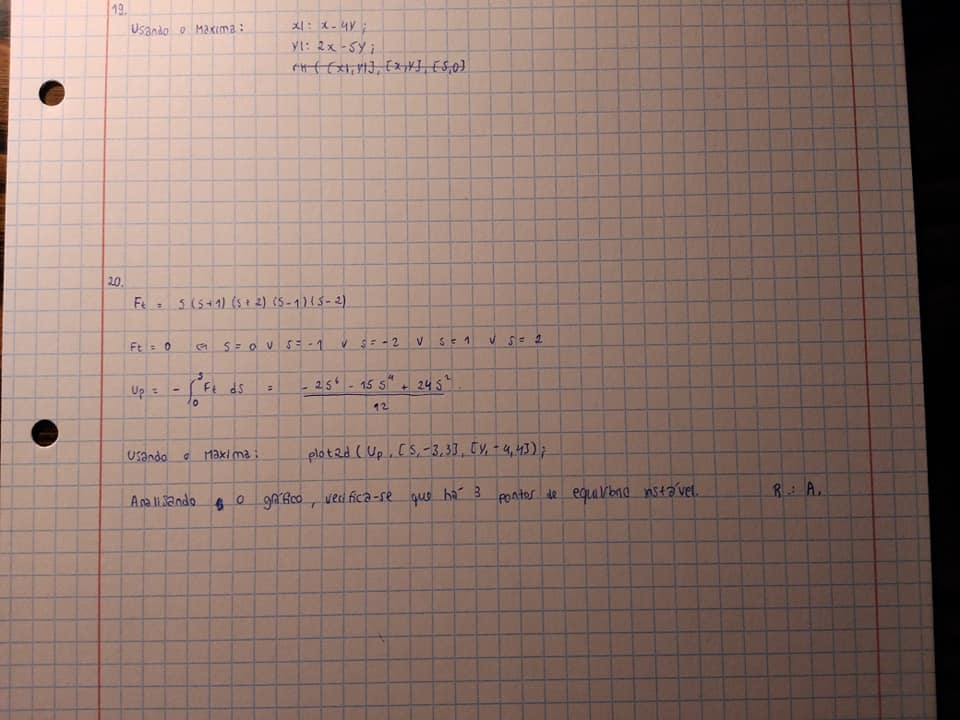 19.
Usando o Maxima: x1: x-4y;
y1: 2x-5y;
rk([x1,y1],[x,y],[5,0]
20.
Ft = s(s+1)(s+2)(s-1)(s-2)
Ft = 0 ⇔ s = 0 ∨ s = -1 ∨ s = -2 ∨ s = 1 ∨ s = 2
Up = - ∫₀ˢ Ft ds = (- 2s⁶ - 15s⁴ + 24s²)/12
Usando o Maxima: plot2d(Up, [s,-3,3], [y,-4,4]);
Analisando o gráfico, verifica-se que há 3 pontos de equilíbrio instável. R.: A.